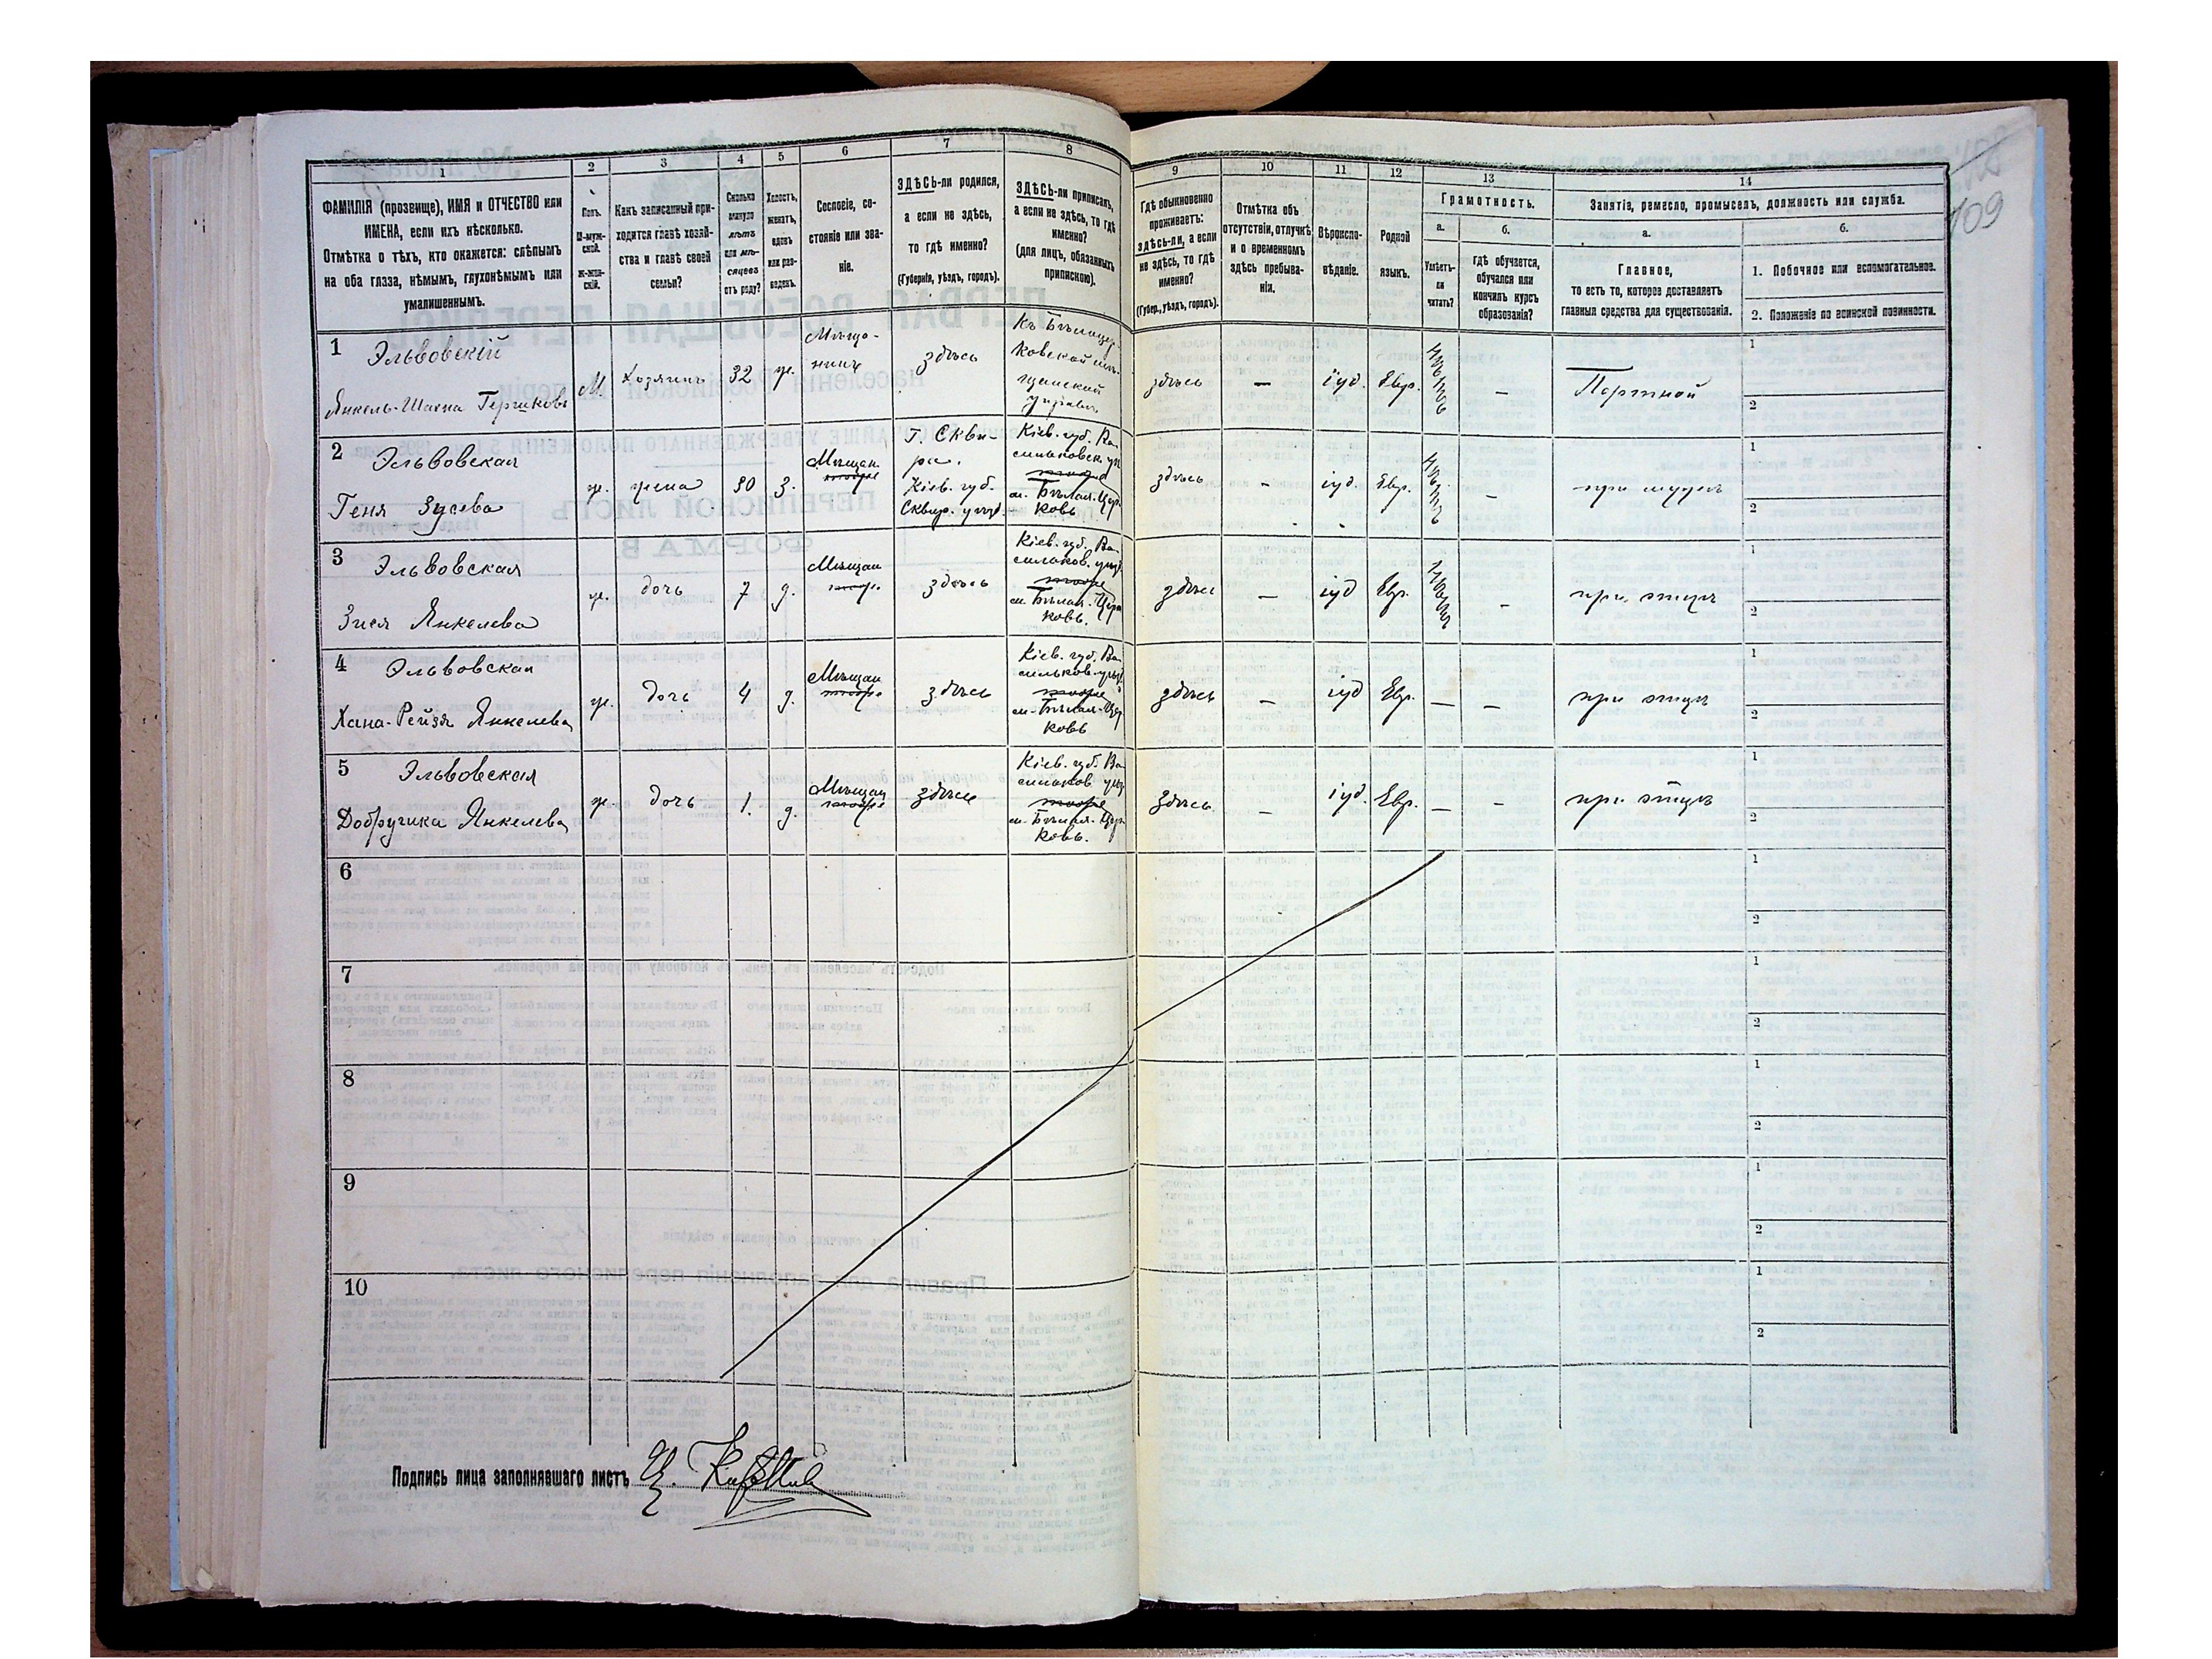 109
1 2 3 4 5 6 7 8 9 10 11 12 13 14
ФАМИЛІЯ (прозвище), ИМЯ и ОТЧЕСТВО или
ИМЕНА, если ихъ нѣсколько.
Отмѣтка о тѣхъ, кто окажется: слѣпымъ
на оба глаза, нѣмымъ, глухонѣмымъ или
умалишеннымъ.
Полъ.
М-муж-
ской.
Ж-жен-
скій.
Какъ записанный при-
ходится главѣ хозяй-
ства и главѣ своей
семьи?
Сколько
минуло
лѣтъ
или мѣ-
сяцевъ
отъ роду?
Холостъ,
женатъ,
вдовъ
или раз-
веденъ.
Сословіе, со-
стояніе или зва-
ніе.
ЗДѢСЬ-ли родился,
а если не здѣсь,
то гдѣ именно?
(Губернія, уѣздъ, городъ).
ЗДѢСЬ-ли приписанъ,
а если не здѣсь, то гдѣ
именно?
(для лицъ, обязанныхъ
припискою).
Гдѣ обыкновенно
проживаетъ:
здѣсь-ли, а если
не здѣсь, то гдѣ
именно?
(Губер., уѣздъ, городъ).
Отмѣтка объ
отсутствіи, отлучкѣ
и о временномъ
здѣсь пребыва-
ніи.
Вѣроиспо-
вѣданіе.
Родной
языкъ.
Грамотность.
а.
Умѣетъ-
ли
читать?
б.
гдѣ обучается,
обучался или
кончилъ курсъ
образованія?
Занятіе, ремесло, промыселъ, должность или служба.
а.
Главное,
то есть то, которое доставляетъ
главныя средства для существованія.
б.
1. Побочное или вспомогательное.
2. Положеніе по воинской повинности.
1 Эльвовскій
Янкель-Шахна Гершковъ
М. Хозяинъ 32 ж.
Мѣща-
нинъ
здѣсь
Къ Бѣлоцер-
ковской мѣ-
щанской
управѣ
здѣсь — іуд. Евр. — Портной
1
2
2 Эльвовская
Геня Зусева
ж. жена 30 з.
Мѣщан.
Г. Скви-
ра.
Кіев. губ.
Сквир. уѣзд.
Кіев. губ. Ва-
сильковск. уѣ
м. Бѣлая-Цер
ковь
здѣсь - іуд. Евр. - при мужѣ
1
2
3 Эльвовская
Зися Янкелева
ж. дочь 7 д.
Мѣщан
здѣсь
Кіев. губ. Ва-
сильков. уѣзд.
м. Бѣлая-Цер
ковь.
здѣсь — іуд Евр. - при отцѣ
1
2
4 Эльвовская
Хана-Рейзя Янкелева
ж. дочь 4 д.
Мѣщан
здѣсь
Кіев. губ. Ва-
сильков. уѣзд
м. Бѣлая-Цер
ковь
здѣсь — іуд Евр. — — при отцѣ
1
2
5 Эльвовская
Добручика Янкелева
ж. дочь 1. д.
Мѣщан
здѣсь
Кіев. губ. Ва-
сильков. уѣз
м. Бѣлая-Цер
ковь.
здѣсь. — іуд. Евр. — - при отцѣ
1
2
6
1
2
7
1
2
8
1
2
9
1
2
10
1
2
Подпись лица заполнявшаго листъ